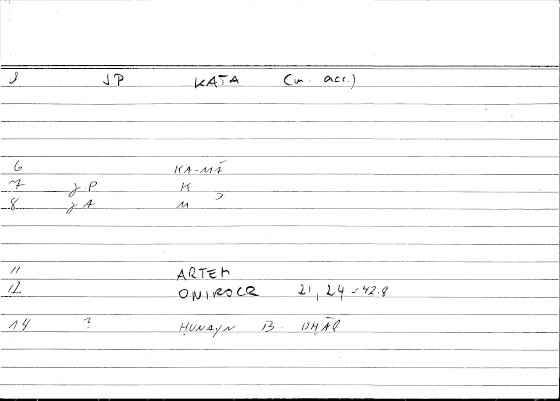 JP KATA (w. acc.)
6 KA-MĀ
7 yP K
8 yA M
11 ARTEM
12 ONIROCR 21, 24 - 42.8
14 ? HUNAYN B.